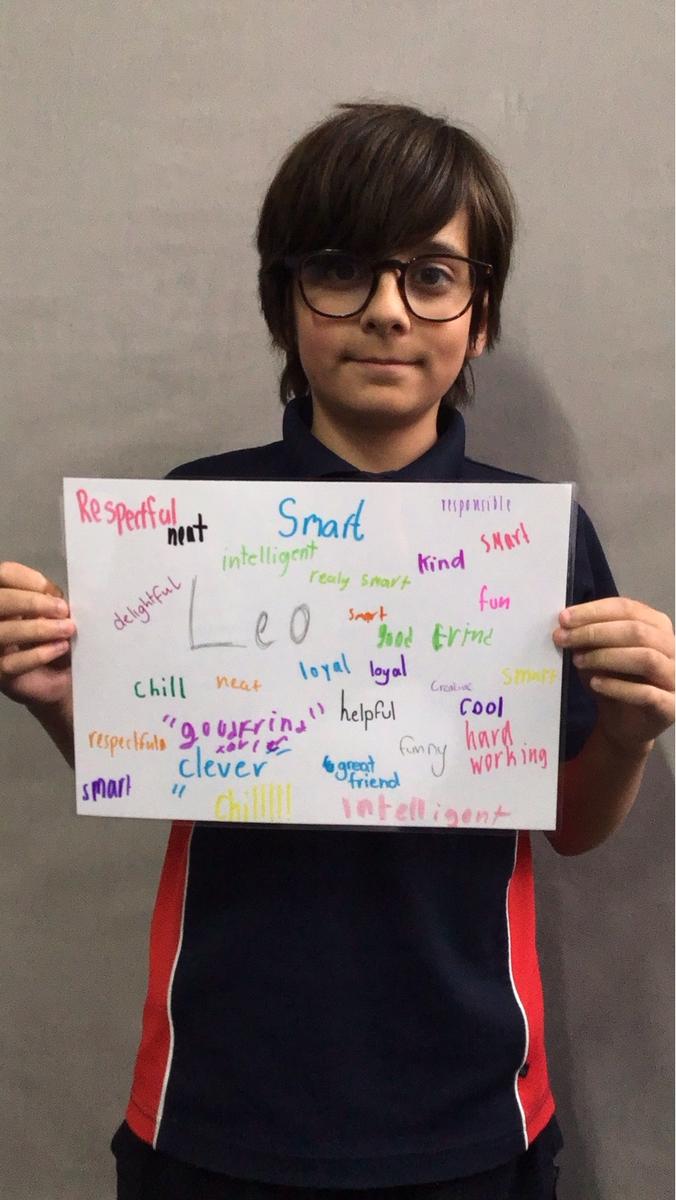 Respectful
neat
Smart
responsible
smart
intelligent
kind
realy smart
delightful
Leo
fun
smart
good frind
loyal
loyal
smart
chill
neat
Creative
cool
helpful
"goodfrind"
respectful
funny
hard
working
clever
great
friend
smart
chill!!!!
intelligent